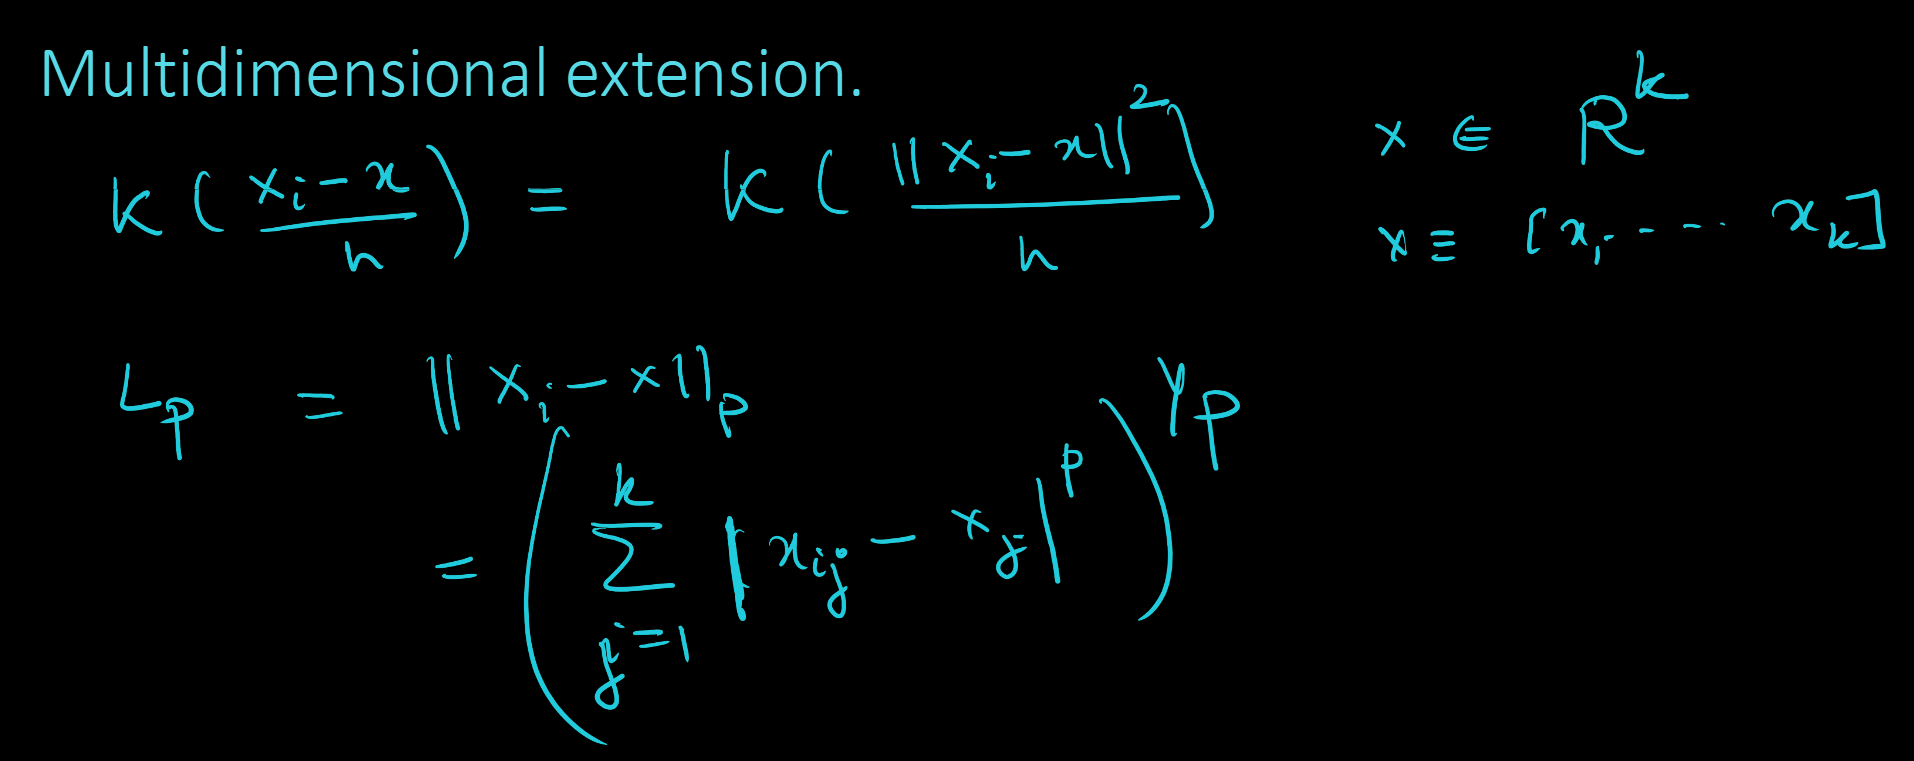 Multidimensional extension.
K ( (x_i − x) / h ) = K ( ||x_i − x||² / h )
x ∈ R^k
x ≡ [x_1 ---- x_k]
L_p = ||x_i − x||_p
= ( Σ_{j=1}^{k} |x_{ij} − x_j|^p )^{1/p}